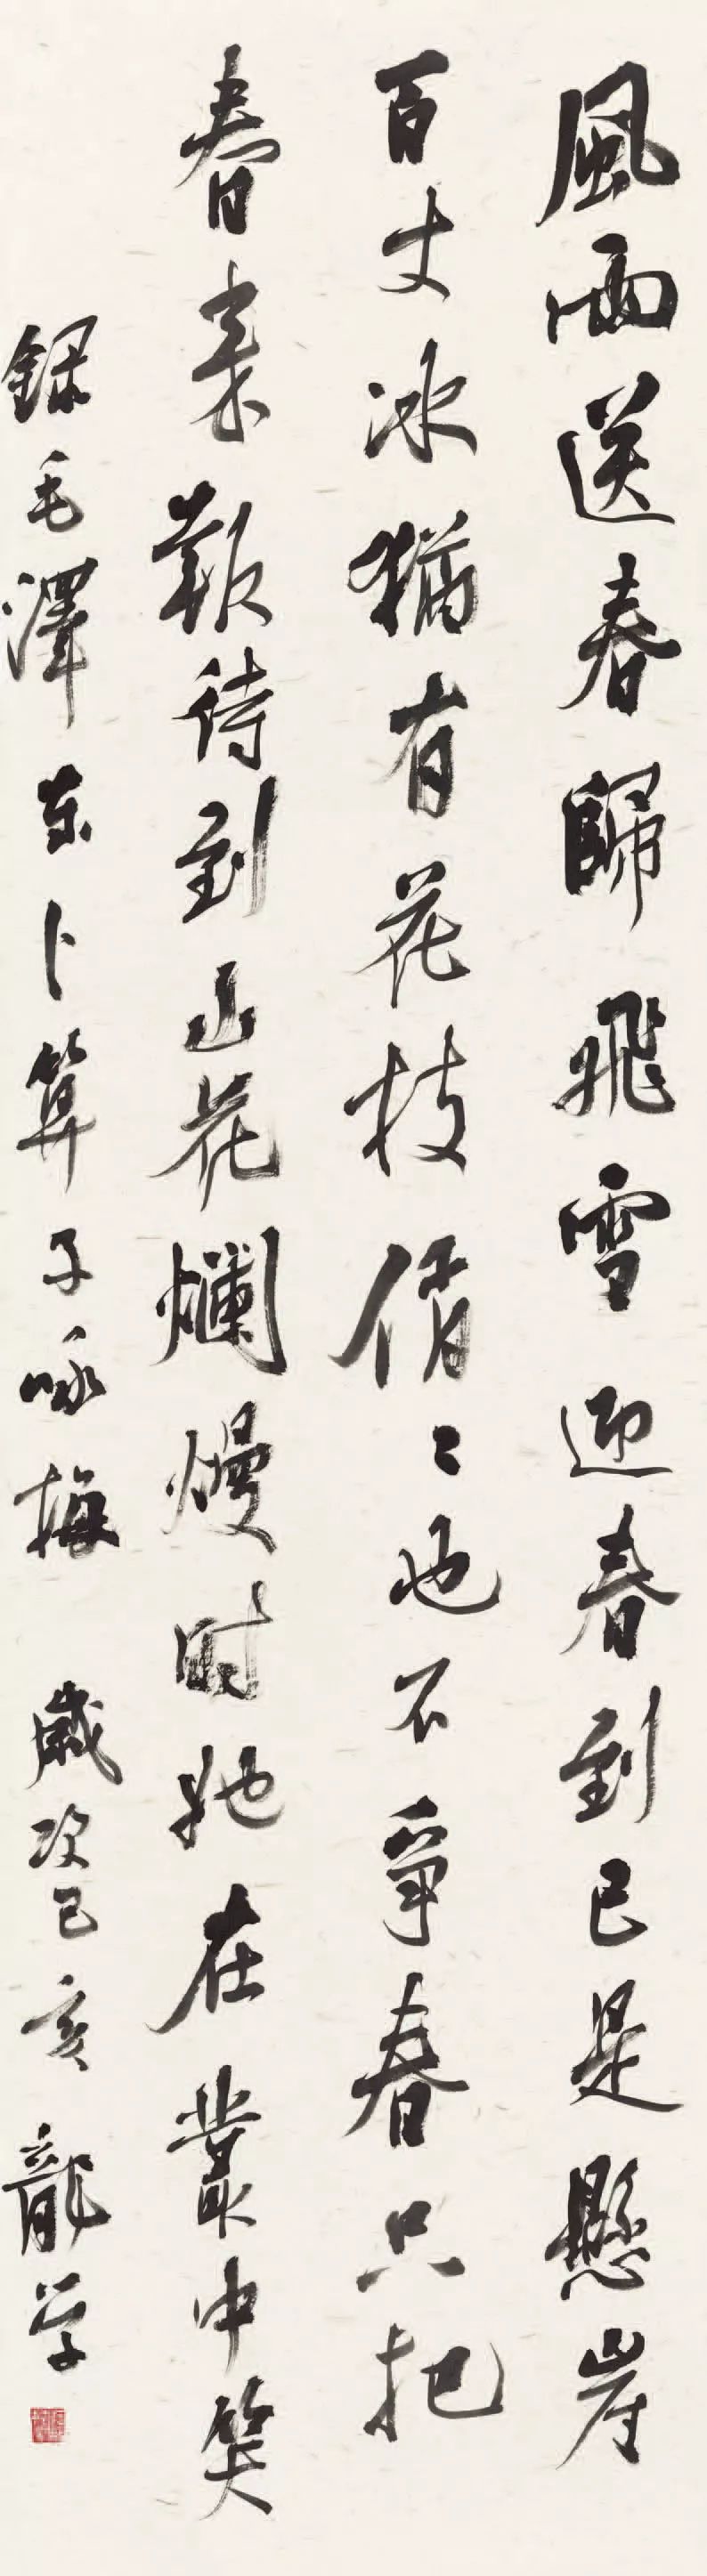 風雨送春歸飛雪迎春到已是懸崖
百丈冰猶有花枝俏〻也不爭春只把
春來報待到山花爛熳時她在叢中笑
録毛澤东卜算子咏梅 歲次己亥龍学